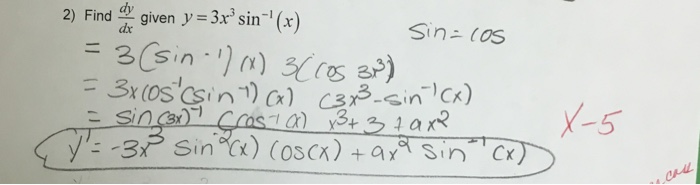 2) Find dy/dx given y = 3x³ sin⁻¹(x)
sin = cos
= 3(sin⁻¹)(x) 3(cos 3x³)
= 3x cos⁻¹(sin⁻¹)(x) (3x³-sin⁻¹(x)
= sin(3x)⁻¹ (cos⁻¹(x) x³+3+9x²
X-5
y' = -3x³ sin⁻²(x) cos(x) + 9x² sin⁻¹(x)